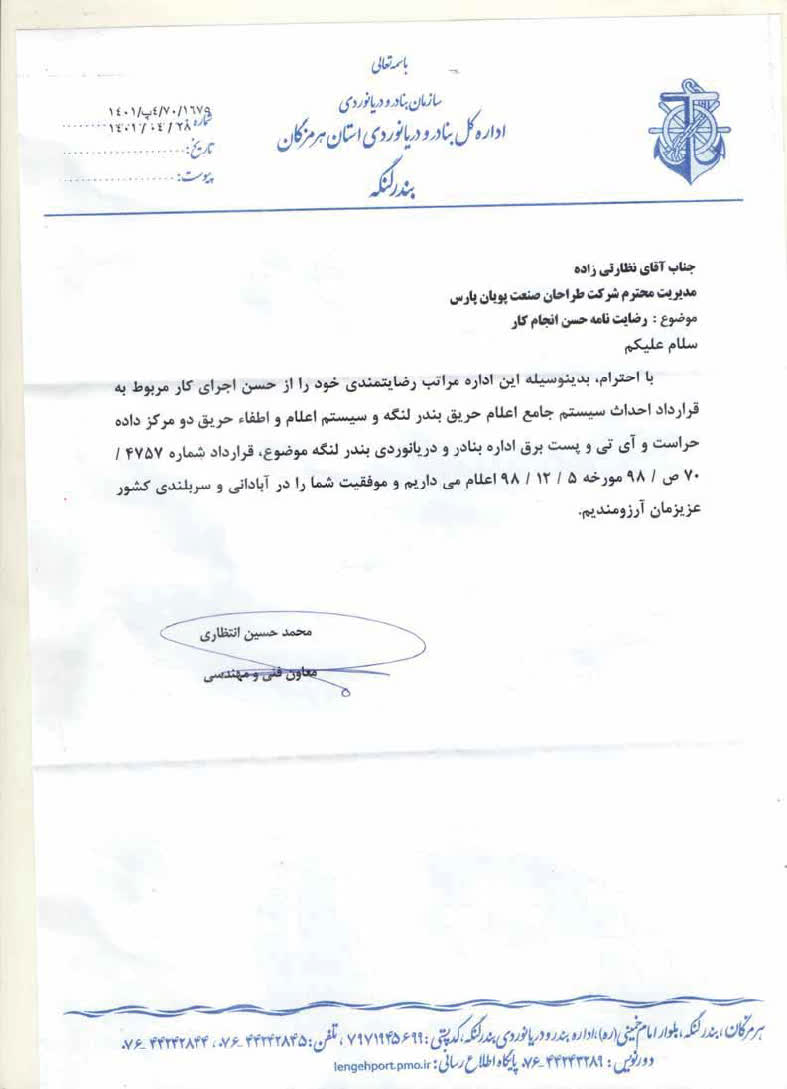 باسمه تعالی
سازمان بنادر و دریانوردی
اداره کل بنادر و دریانوردی استان هرمزگان
بندر لنگه
۱۴۰۱/پ۴/۷۰/۱۶۷۹
شماره
۱۴۰۱/۰۴/۲۸
تاریخ:
پیوست:
جناب آقای نظارتی زاده
مدیریت محترم شرکت طراحان صنعت پویان پارس
موضوع : رضایت نامه حسن انجام کار
سلام علیکم
با احترام، بدینوسیله این اداره مراتب رضایتمندی خود را از حسن اجرای کار مربوط به
قرارداد احداث سیستم جامع اعلام حریق بندر لنگه و سیستم اعلام و اطفاء حریق دو مرکز داده
حراست و آی تی و پست برق اداره بنادر و دریانوردی بندر لنگه موضوع، قرارداد شماره ۴۷۵۷ /
۷۰ ص / ۹۸ مورخه ۵ / ۱۲ / ۹۸ اعلام می داریم و موفقیت شما را در آبادانی و سربلندی کشور
عزیزمان آرزومندیم.
محمد حسین انتظاری
معاون فنی و مهندسی
هرمزگان، بندر لنگه، بلوار امام خمینی (ره)، اداره بندر و دریانوردی بندر لنگه، کد پستی: ۷۹۷۱۹۴۵۶۹۹ ، تلفن: ۴۴۲۴۲۸۴۵-۰۷۶ ، ۴۴۲۴۲۸۴۴-۰۷۶
دورنویس : ۴۴۲۴۳۲۸۹-۰۷۶ پایگاه اطلاع رسانی: lengehport.pmo.ir